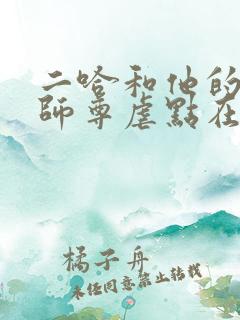 二哈和他的
師尊虐點在
橘子舟
未经同意禁止转载